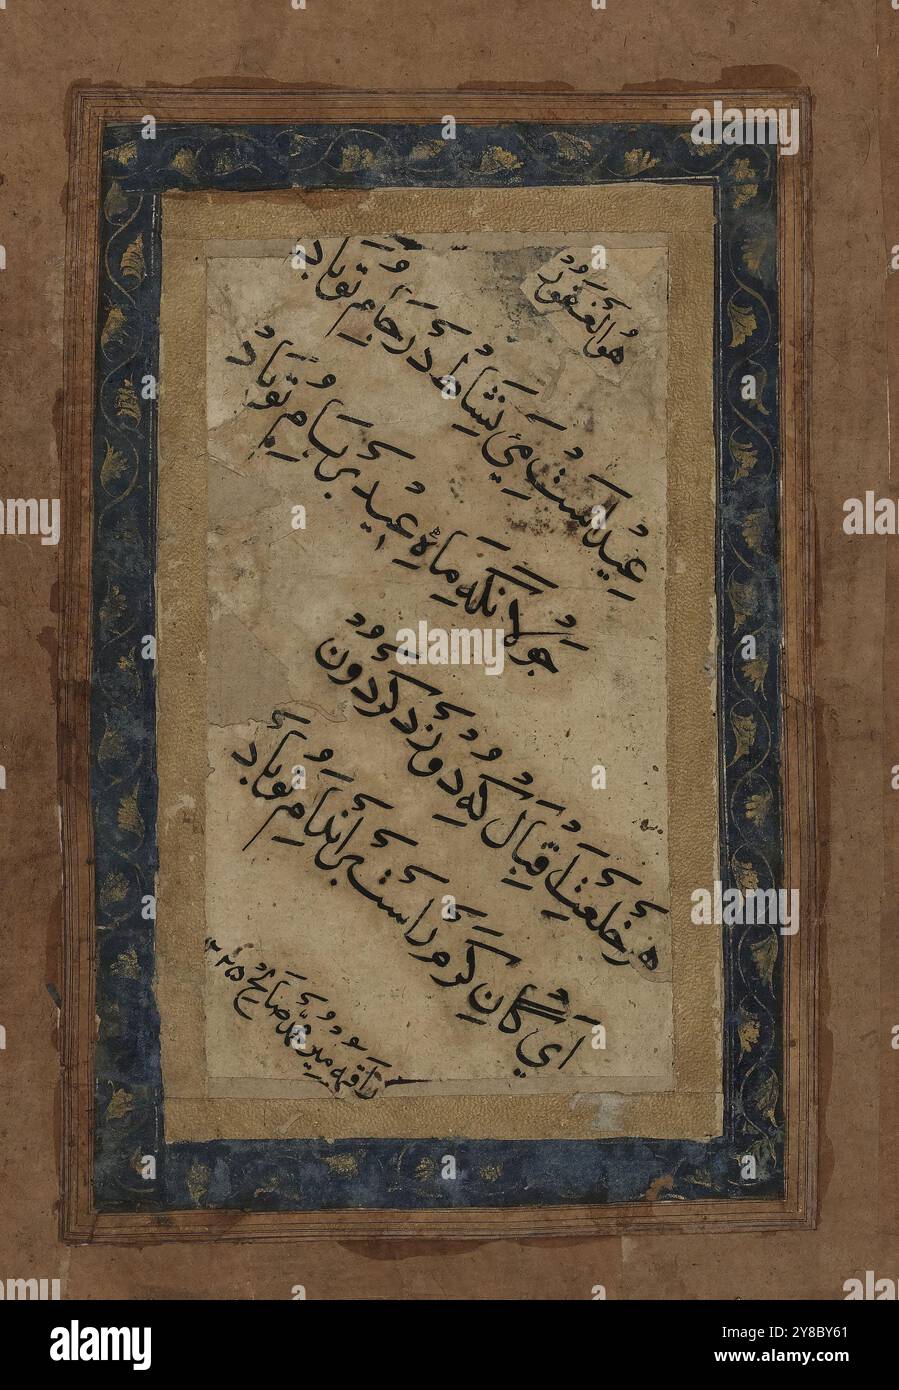 هو الغفور
عید است می نشاط در جام تو باد
جولانگه ماه عید بر بام تو باد
هر خلعت اقبال که دوزد کردون
ای کان کرم راست بر اندام تو باد
راقمه میر محمد صالح
alamy
Image ID: Y8BY61
www.alamy.com